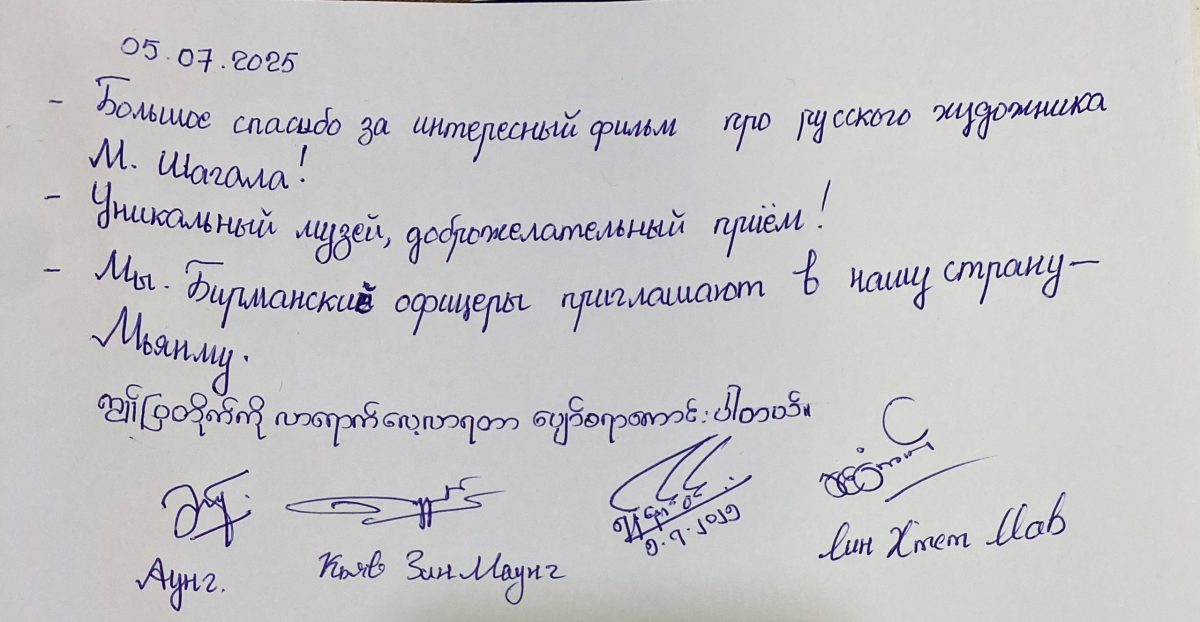 05.07.2025
- Большое спасибо за интересный фильм про русского художника
М. Шагала!
- Уникальный музей, доброжелательный приём!
- Мы. Бирманский офицеры приглашают в нашу страну—
Мьянму.
ဤပြတိုက်ကို လာရောက်လေ့လာရတာ ပျော်စရာကောင်းပါတယ်။
၅.၇.၂၀၂၅
Аунг.
Кьяв Зин Маунг
Лин Хтет Мав